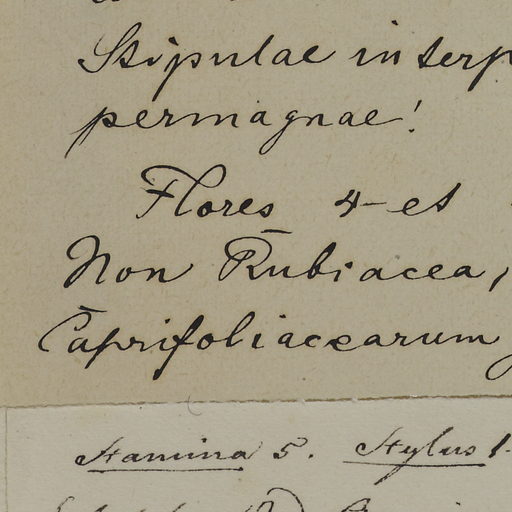 Stipulae interp
permagnae!
Flores 4-et
Non Rubiacea,
Caprifoliacearum
Stamina 5. Stylus 1.